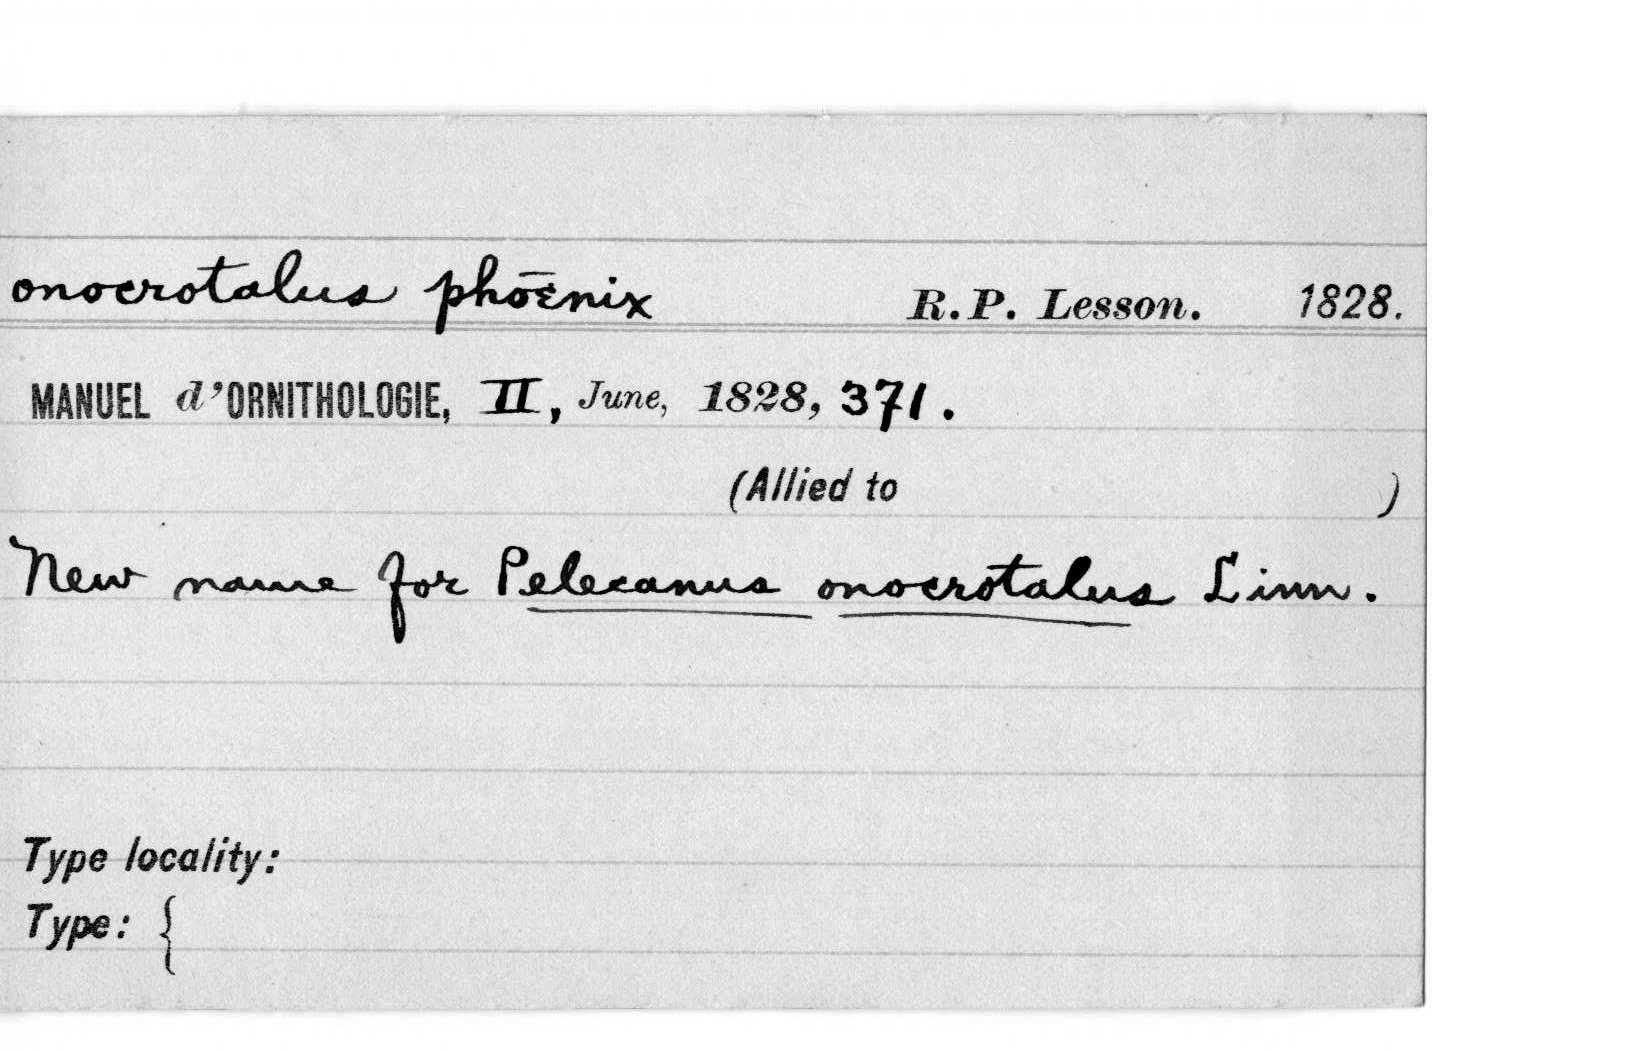 onocrotalus phœnix R.P. Lesson. 1828.
MANUEL d'ORNITHOLOGIE, II, June, 1828, 371.
(Allied to )
New name for Pelecanus onocrotalus Linn.
Type locality:
Type: {